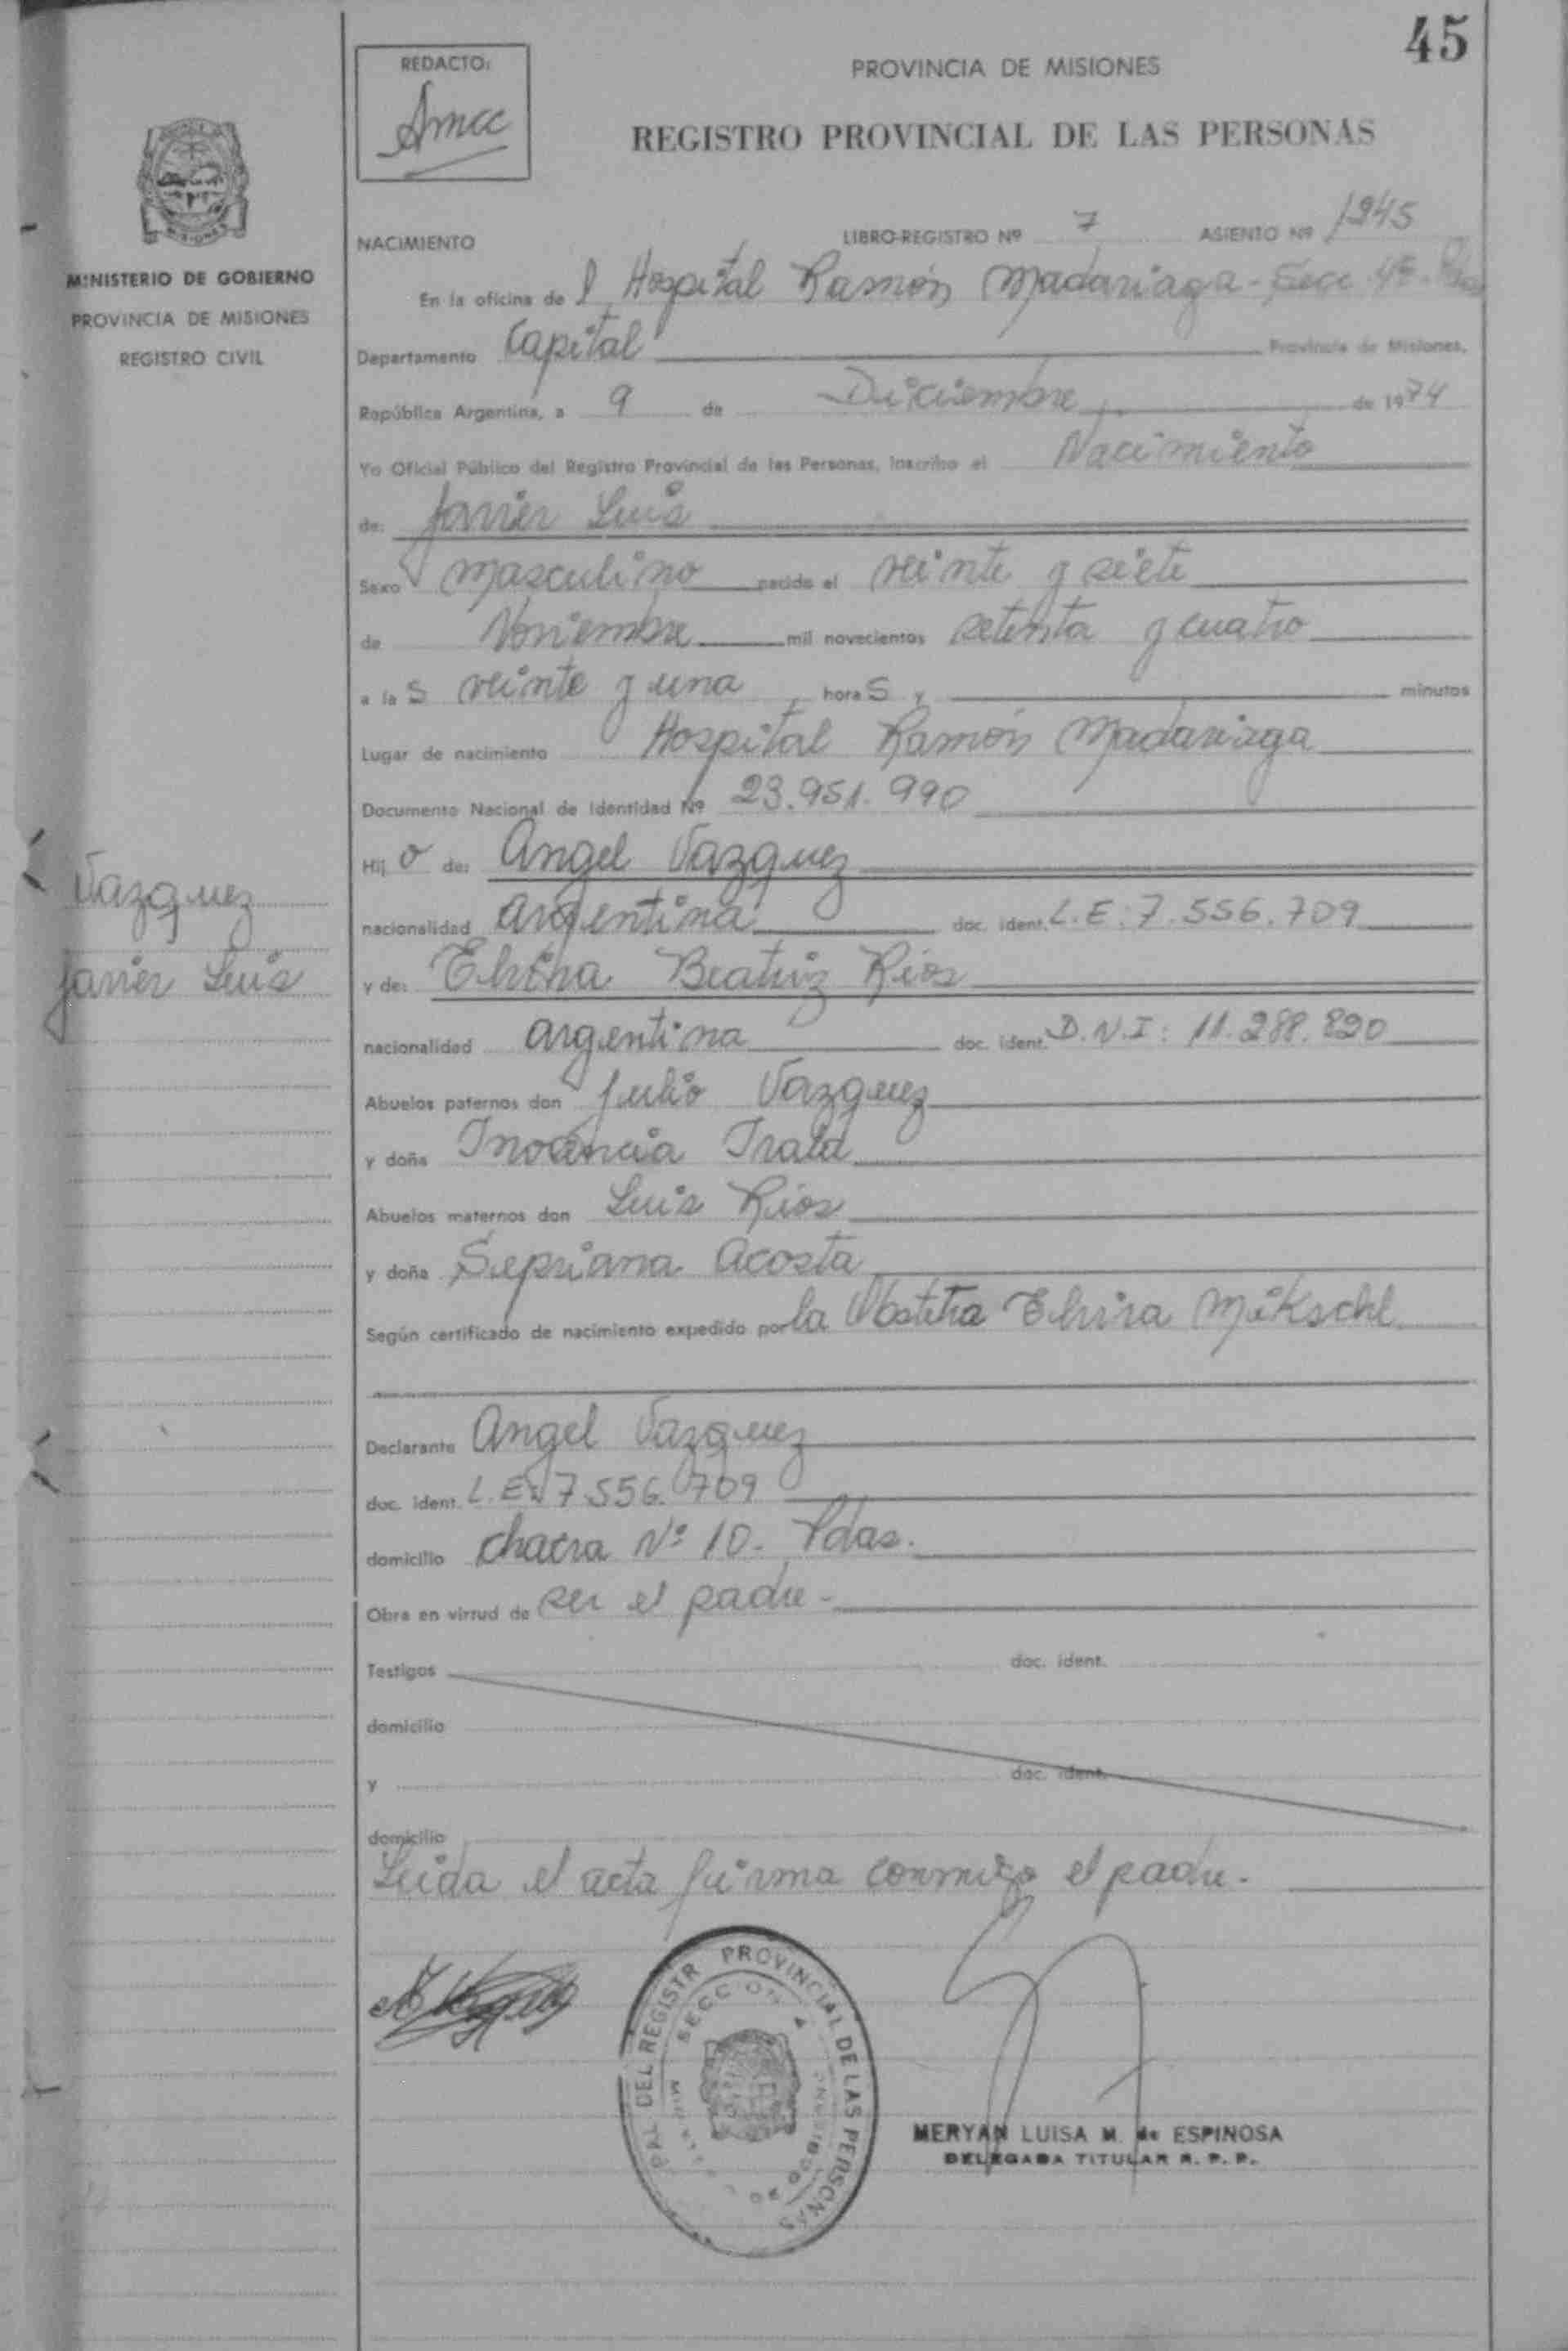 45
REDACTO:
Amcc
PROVINCIA DE MISIONES
REGISTRO PROVINCIAL DE LAS PERSONAS
MISIONES
MINISTERIO DE GOBIERNO
PROVINCIA DE MISIONES
REGISTRO CIVIL
NACIMIENTO LIBRO-REGISTRO Nº 7 ASIENTO Nº 1245
En la oficina de l Hospital Ramón Madariaga - Secc 4ª - Pdas
Departamento Capital Provincia de Misiones,
República Argentina, a 9 de Diciembre de 1974
Yo Oficial Público del Registro Provincial de las Personas, inscribo el Nacimiento
de: Javier Luis
Sexo masculino nacido el veinte y siete
de Noviembre mil novecientos setenta y cuatro
a la s veinte y una hora s y minutos
Lugar de nacimiento Hospital Ramón Madariaga
Documento Nacional de Identidad Nº 23.951.990
Hij o de: Angel Vazquez
nacionalidad argentina doc. ident. L.E: 7.556.709
Vazquez
Javier Luis
y de: Elvira Beatriz Rios
nacionalidad argentina doc. ident. D.N.I: 11.288.820
Abuelos paternos don Julio Vazquez
y doña Inocencia Irala
Abuelos maternos don Luis Rios
y doña Sepriana Acosta
Según certificado de nacimiento expedido por la Obstetra Elvira Mikschl
Declarante Angel Vazquez
doc. ident. L.E: 7.556.709
domicilio chacra Nº 10. Pdas.
Obra en virtud de ser el padre -
Testigos doc. ident.
domicilio
y doc. ident.
domicilio
Leida el acta firma conmigo el padre.
PAL DEL REGISTR PROVINCIAL DE LAS PERSONAS
SECCION 4
MERYAN LUISA M. de ESPINOSA
DELEGADA TITULAR R. P. P.